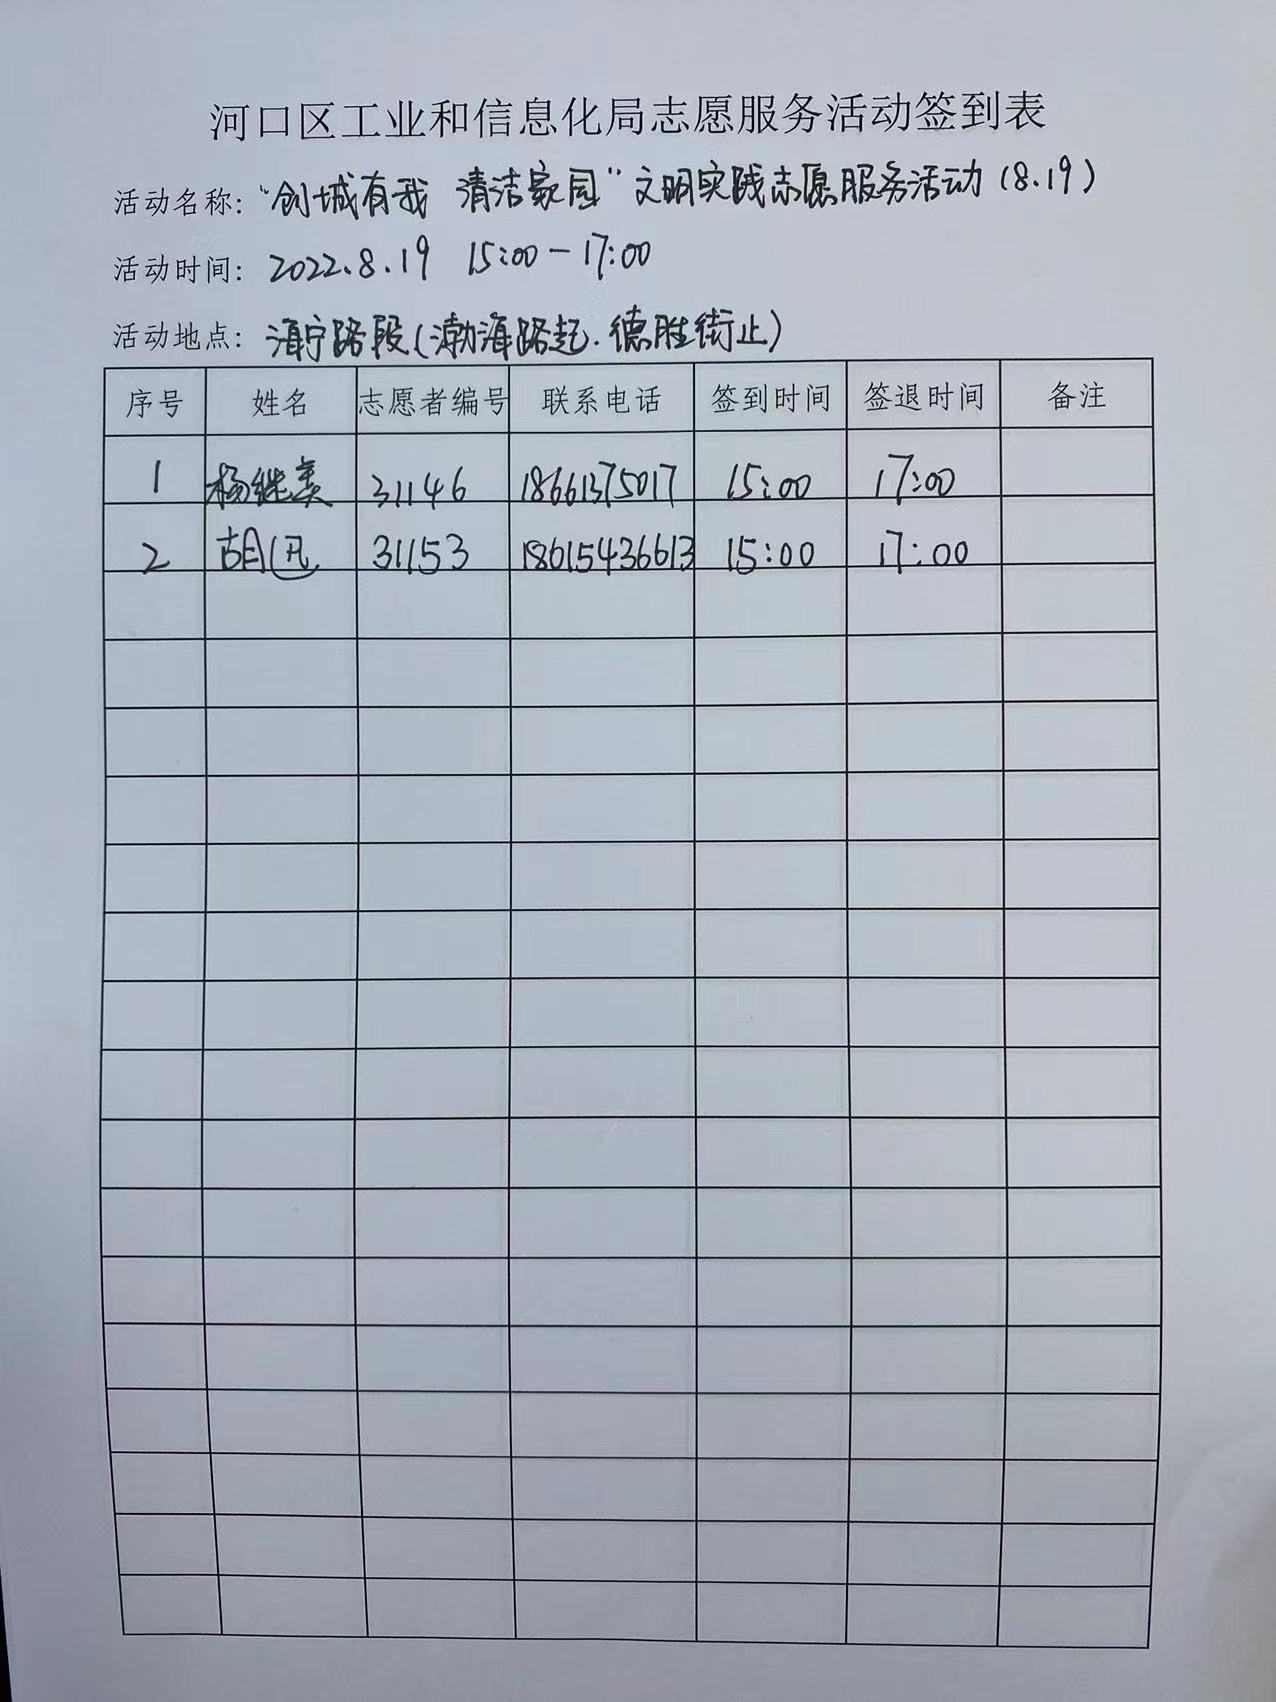 河口区工业和信息化局志愿服务活动签到表
活动名称: “创城有我 清洁家园”文明实践志愿服务活动(8.19)
活动时间: 2022.8.19 15:00-17:00
活动地点: 海宁路段(渤海路起.德胜街止)
序号 姓名 志愿者编号 联系电话 签到时间 签退时间 备注
1 杨继美 31146 18661375017 15:00 17:00
2 胡迅 31153 18615436613 15:00 17:00